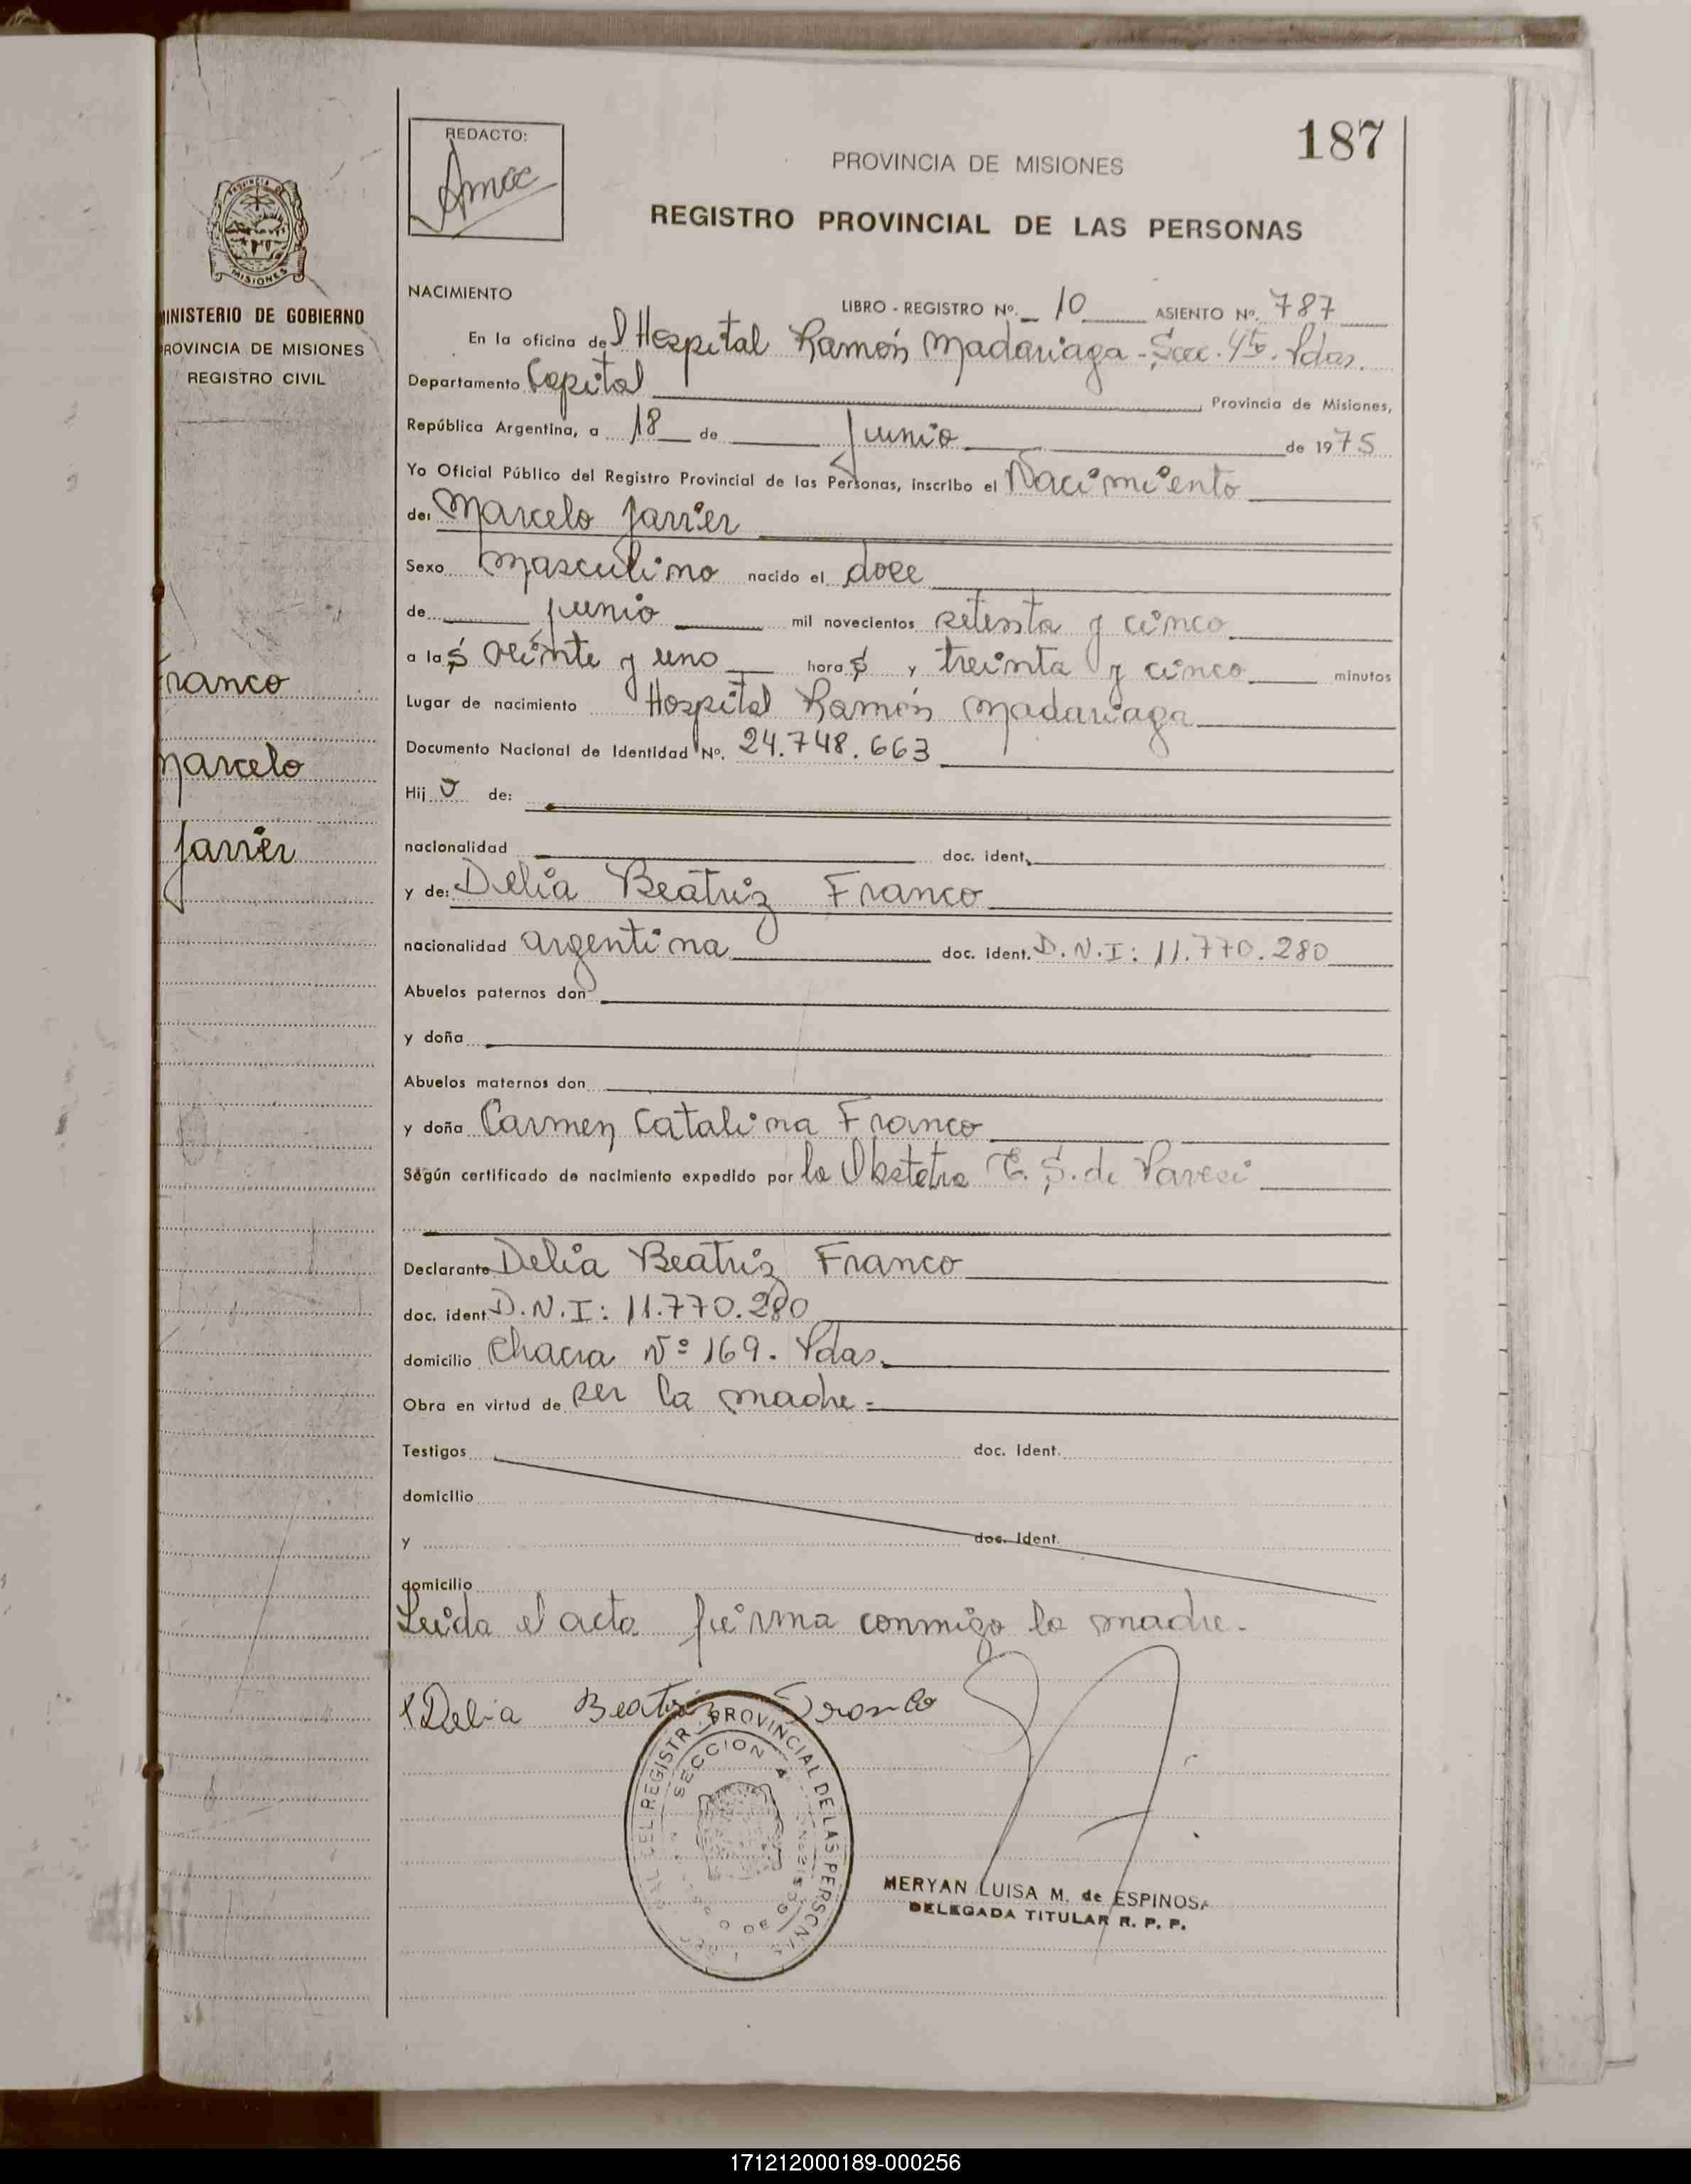 187
REDACTO:
PROVINCIA DE MISIONES
REGISTRO PROVINCIAL DE LAS PERSONAS
PROVINCIA DE
MISIONES
MINISTERIO DE GOBIERNO
PROVINCIA DE MISIONES
REGISTRO CIVIL
Franco
Marcelo
Javier
NACIMIENTO
LIBRO - REGISTRO Nº. 10 ASIENTO Nº. 787
En la oficina del Hospital Ramón Madariaga - Secc. 4ta. Pdas.
Departamento Capital Provincia de Misiones,
República Argentina, a 18 de Junio de 1975
Yo Oficial Público del Registro Provincial de las Personas, inscribo el Nacimiento
de: Marcelo Javier
Sexo Masculino nacido el doce
de junio mil novecientos setenta y cinco
a las veinte y uno horas y treinta y cinco minutos
Lugar de nacimiento Hospital Ramón Madariaga
Documento Nacional de Identidad Nº. 24.748.663
Hijo de:
nacionalidad doc. ident.
y de: Delia Beatriz Franco
nacionalidad argentina doc. ident. D.N.I: 11.770.280
Abuelos paternos don
y doña
Abuelos maternos don
y doña Carmen Catalina Franco
Según certificado de nacimiento expedido por la Obstetra E. S. de
Declarante Delia Beatriz Franco
doc. ident D.N.I: 11.770.280
domicilio Chacra Nº 169. Pdas.
Obra en virtud de ser la madre =
Testigos doc. Ident.
domicilio
y doc. Ident.
domicilio
Leída el acta firma conmigo la madre.
Delia Beatriz Franco
DEL REGISTR. PROVINCIAL DE LAS PERSONAS
SECCION 4
MERYAN LUISA M. de ESPINOSA
DELEGADA TITULAR R. P. P.
171212000189-000256